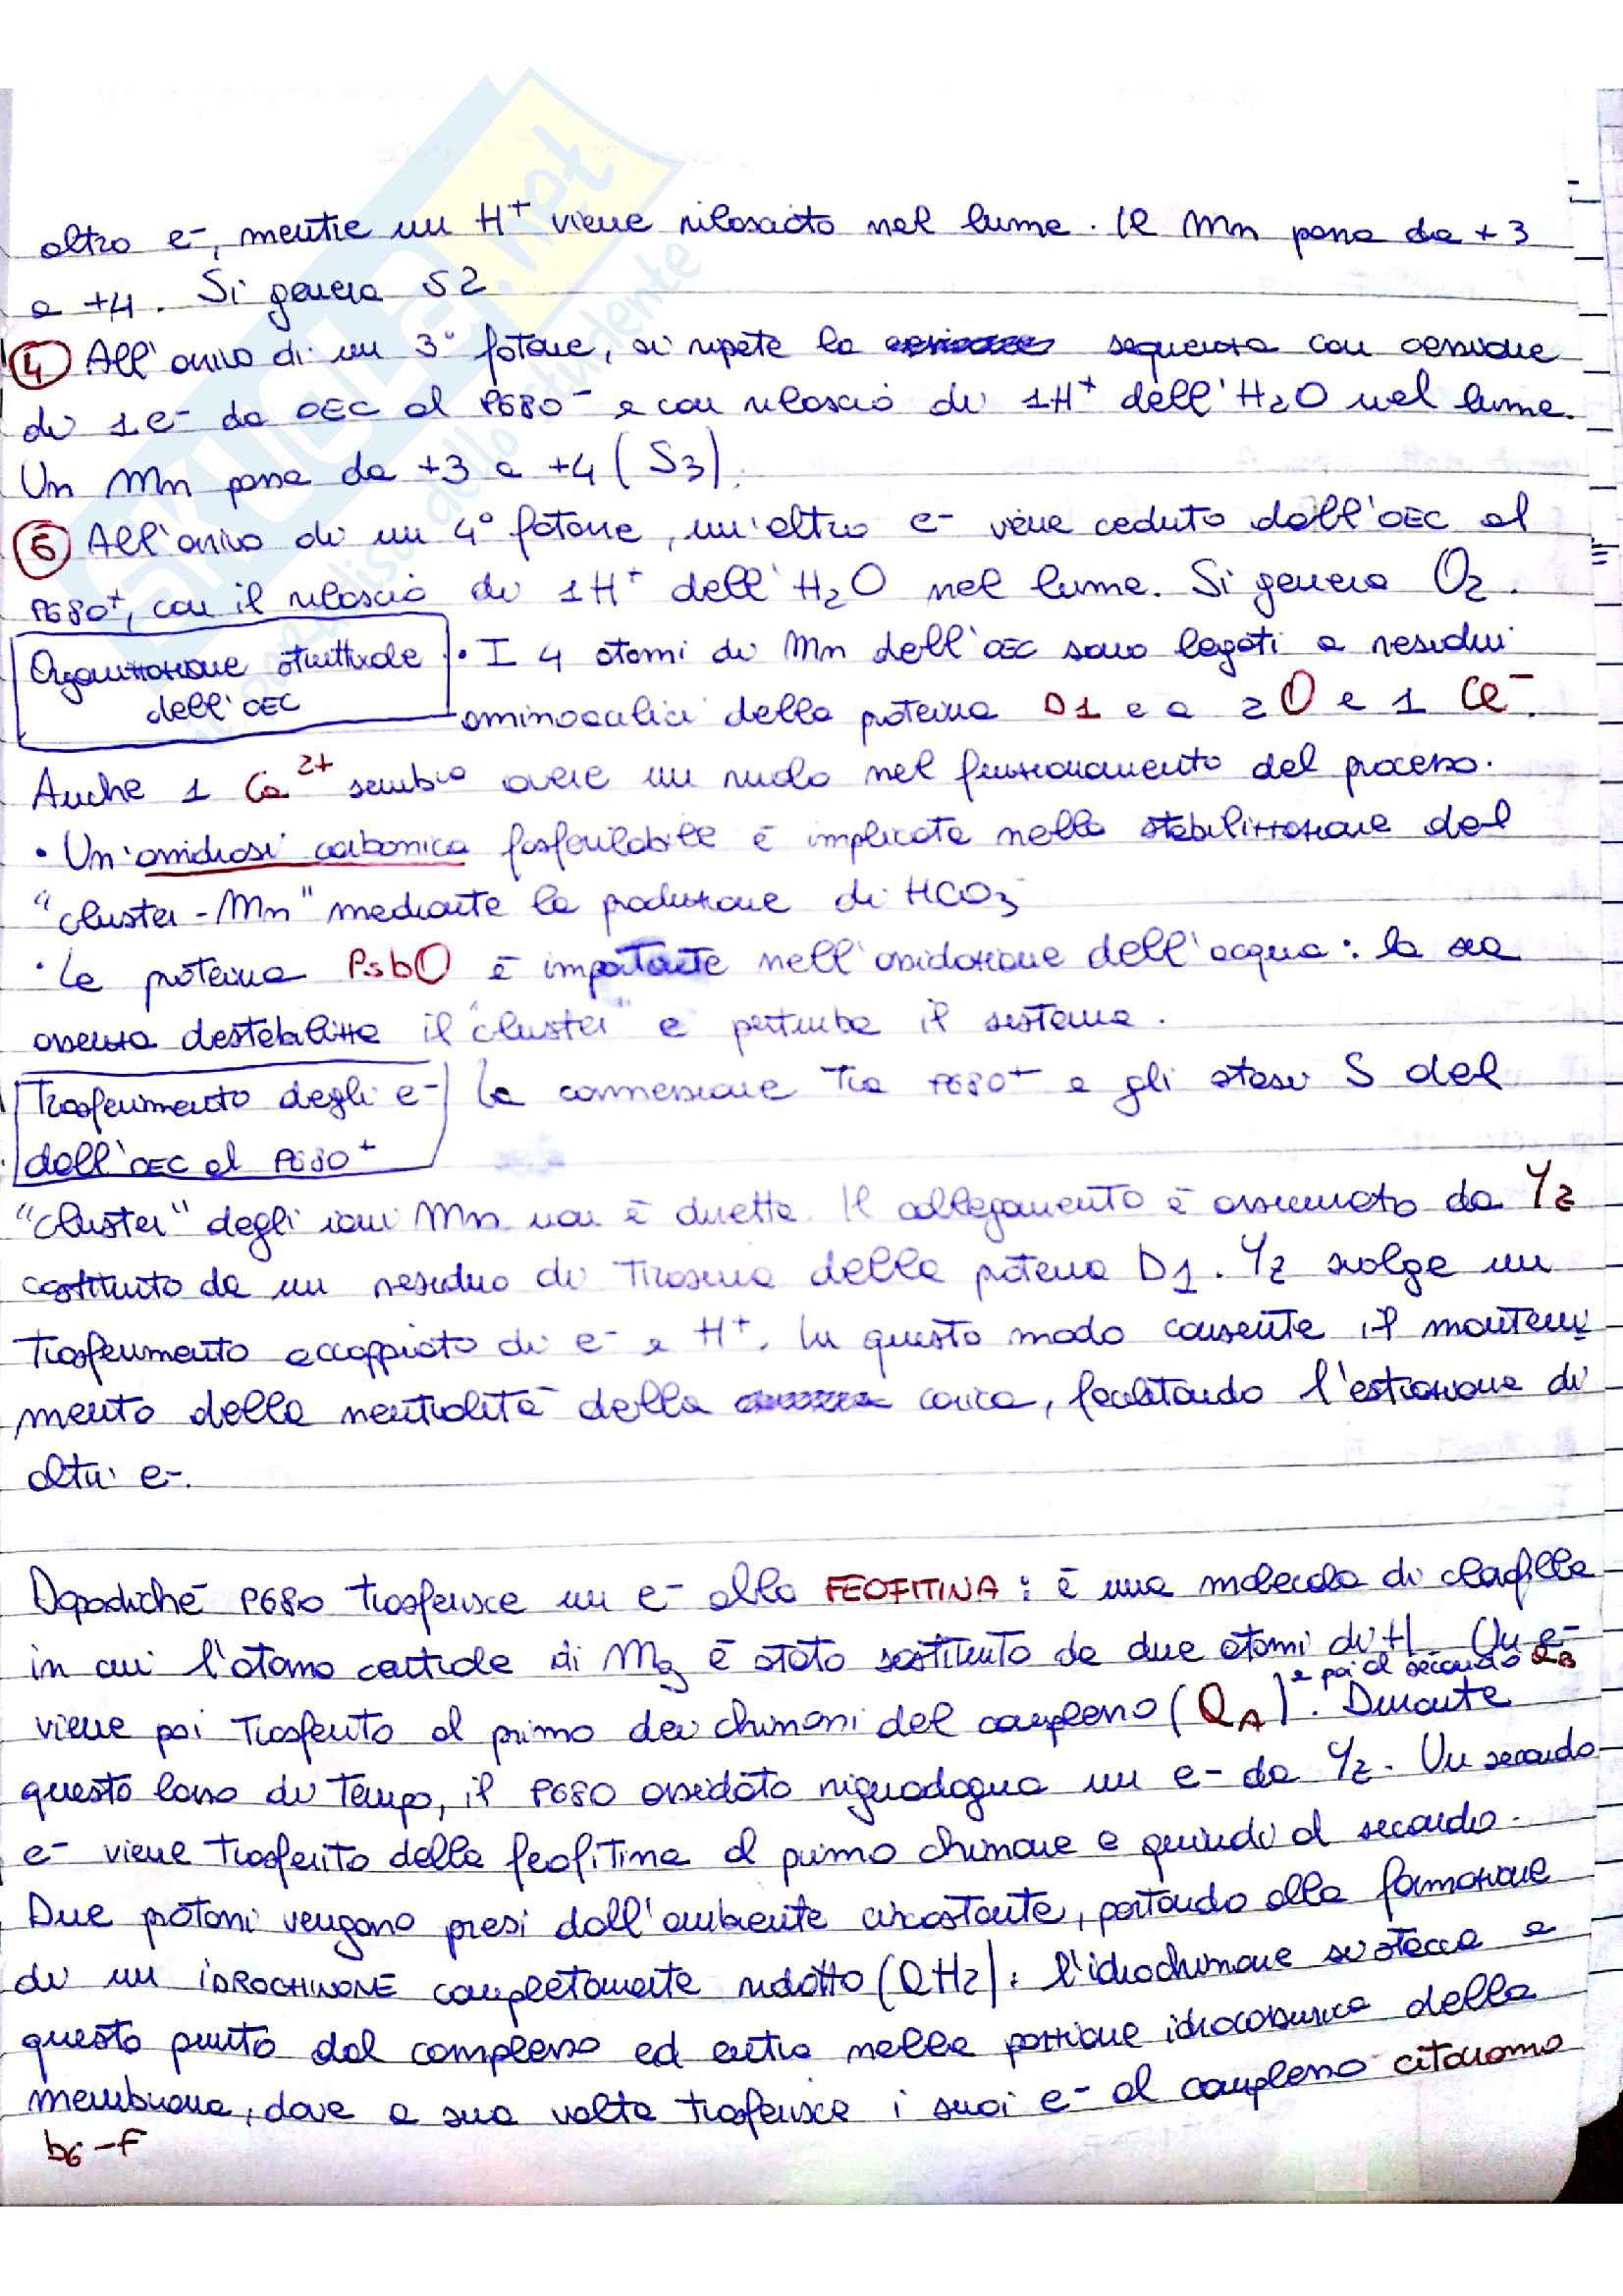 altro e-, mentre un H+ viene rilasciato nel lume. Il Mn passa da +3
a +4. Si genera S2
4 All'arrivo di un 3° fotone, si ripete la sequenza con cessione
di 1e- da OEC al P680- e con rilascio di 1H+ dell'H2O nel lume.
Un Mn passa da +3 a +4 (S3).
6 All'arrivo di un 4° fotone, un'altro e- viene ceduto dall'OEC al
P680+, con il rilascio di 1H+ dell'H2O nel lume. Si genera O2.
Organizzazione strutturale
dell'OEC
• I 4 atomi di Mn dell'OEC sono legati a residui
amminoacilici della proteina D1 e a 2 O e 1 Cl-.
Anche 1 Ca2+ sembra avere un ruolo nel funzionamento del processo.
• Un'anidrasi carbonica fosforilabile è implicata nella stabilizzazione del
"cluster-Mn" mediante la produzione di HCO3
• La proteina PsbO è importante nell'ossidazione dell'acqua: la sua
assenza destabilizza il "cluster" e perturba il sistema.
Trasferimento degli e-
dall'OEC al P680+
La connessione tra P680+ e gli stati S del
"cluster" degli ioni Mn non è diretta. Il collegamento è assicurato da Yz
costituito da un residuo di Tirosina della proteina D1. Yz svolge un
trasferimento accoppiato di e- e H+. In questo modo consente il manteni
mento della neutralità della carica, facilitando l'estrazione di
altri e-.
Dopodiché P680 trasferisce un e- alla FEOFITINA: è una molecola di clorofilla
in cui l'atomo centrale di Mg è stato sostituito da due atomi di H. Un e-
viene poi trasferito al primo dei chinoni del complesso (QA) e poi al secondo QB. Durante
questo lasso di tempo, il P680 ossidato riguadagna un e- da Yz. Un secondo
e- viene trasferito dalla feofitina al primo chinone e quindi al secondo.
Due protoni vengono presi dall'ambiente circostante, portando alla formazione
di un IDROCHINONE completamente ridotto (QH2). L'idrochinone si stacca a
questo punto dal complesso ed entra nella porzione idrocarburica della
membrana, dove a sua volta trasferisce i suoi e- al complesso citocromo
b6-f
SKUOLA.net